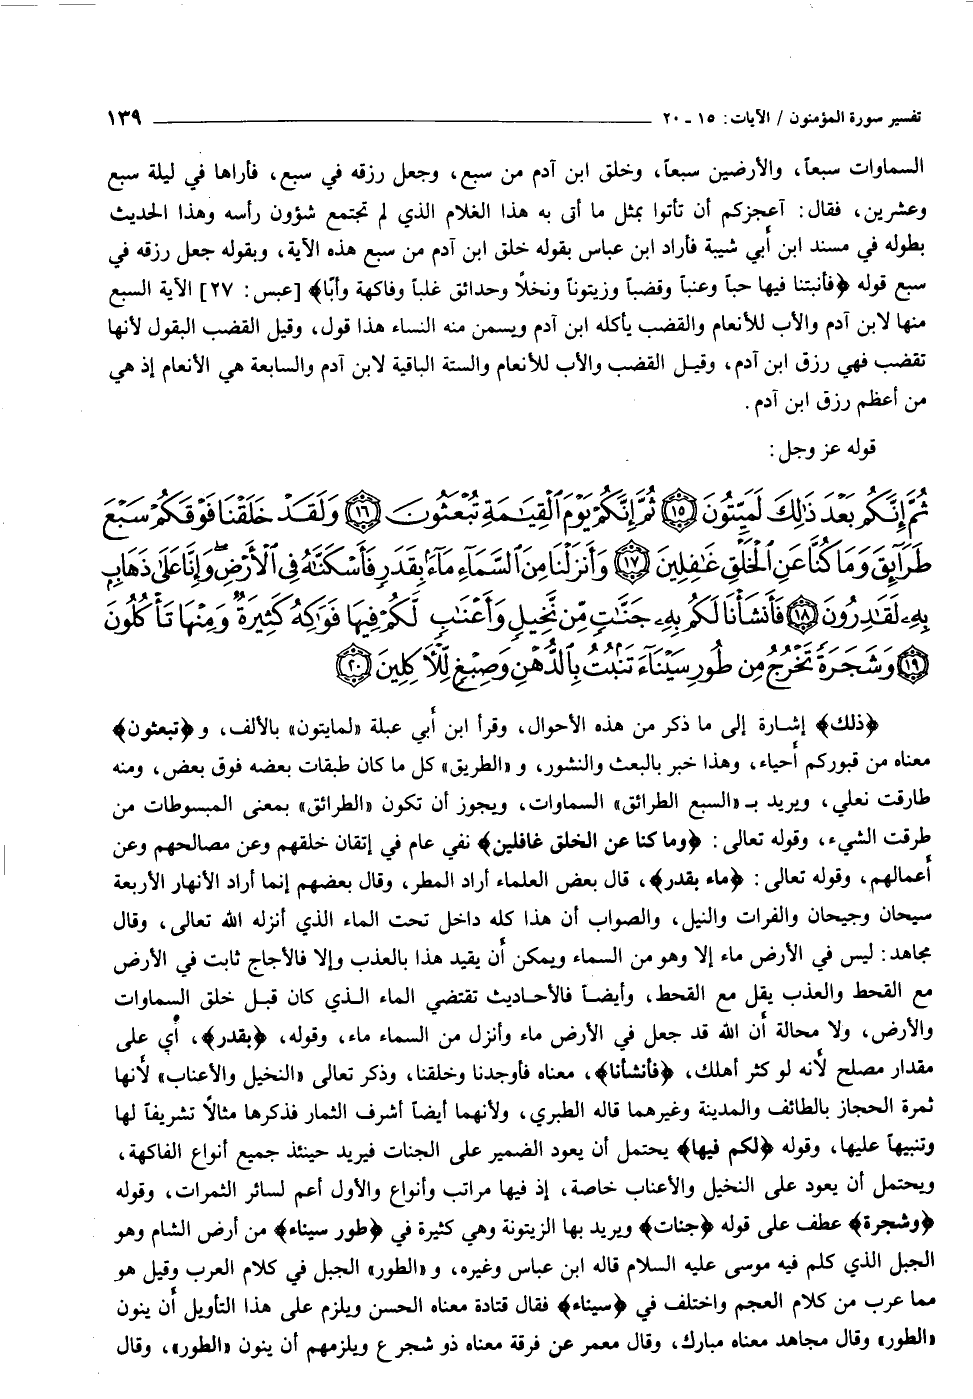 تفسير سورة المؤمنون / الآيات: ١٥ - ٢٠ ١٣٩
السماوات سبعاً، والأرضين سبعاً، وخلق ابن آدم من سبع، وجعل رزقه في سبع، فأراها في ليلة سبع
وعشرين، فقال: أعجزكم أن تأتوا بمثل ما أتى به هذا الغلام الذي لم تجتمع شؤون رأسه وهذا الحديث
بطوله في مسند ابن أبي شيبة فأراد ابن عباس بقوله خلق ابن آدم من سبع هذه الآية، وبقوله جعل رزقه في
سبع قوله ﴿فأنبتنا فيها حباً وعنباً وقضباً وزيتوناً ونخلاً وحدائق غلباً وفاكهة وأبّا﴾ [عبس: ٢٧] الآية السبع
منها لابن آدم والأب للأنعام والقضب يأكله ابن آدم ويسمن منه النساء هذا قول، وقيل القضب البقول لأنها
تقضب فهي رزق ابن آدم، وقيل القضب والأب للأنعام والستة الباقية لابن آدم والسابعة هي الأنعام إذ هي
من أعظم رزق ابن آدم.
قوله عز وجل:
ثُمَّ إِنَّكُم بَعْدَ ذَٰلِكَ لَمَيِّتُونَ ١٥ ثُمَّ إِنَّكُمْ يَوْمَ ٱلْقِيَٰمَةِ تُبْعَثُونَ ١٦ وَلَقَدْ خَلَقْنَا فَوْقَكُمْ سَبْعَ
طَرَآئِقَ وَمَا كُنَّا عَنِ ٱلْخَلْقِ غَٰفِلِينَ ١٧ وَأَنزَلْنَا مِنَ ٱلسَّمَآءِ مَآءًۢ بِقَدَرٍ فَأَسْكَنَّٰهُ فِى ٱلْأَرْضِ ۖ وَإِنَّا عَلَىٰ ذَهَابٍۭ
بِهِۦ لَقَٰدِرُونَ ١٨ فَأَنشَأْنَا لَكُم بِهِۦ جَنَّٰتٍ مِّن نَّخِيلٍ وَأَعْنَٰبٍ لَّكُمْ فِيهَا فَوَٰكِهُ كَثِيرَةٌ وَمِنْهَا تَأْكُلُونَ
١٩ وَشَجَرَةً تَخْرُجُ مِن طُورِ سَيْنَآءَ تَنۢبُتُ بِٱلدُّهْنِ وَصِبْغٍ لِّلْءَاكِلِينَ ٢٠
﴿ذلك﴾ إشارة إلى ما ذكر من هذه الأحوال، وقرأ ابن أبي عبلة «لمايتون» بالألف، و﴿تبعثون﴾
معناه من قبوركم أحياء، وهذا خبر بالبعث والنشور، و«الطريق» كل ما كان طبقات بعضه فوق بعض، ومنه
طارقت نعلي، ويريد بـ «السبع الطرائق» السماوات، ويجوز أن تكون «الطرائق» بمعنى المبسوطات من
طرقت الشيء، وقوله تعالى: ﴿وما كنا عن الخلق غافلين﴾ نفي عام في إتقان خلقهم وعن مصالحهم وعن
أعمالهم، وقوله تعالى: ﴿ماء بقدر﴾، قال بعض العلماء أراد المطر، وقال بعضهم إنما أراد الأنهار الأربعة
سيحان وجيحان والفرات والنيل، والصواب أن هذا كله داخل تحت الماء الذي أنزله الله تعالى، وقال
مجاهد: ليس في الأرض ماء إلا وهو من السماء ويمكن أن يقيد هذا بالعذب وإلا فالأجاج ثابت في الأرض
مع القحط والعذب يقل مع القحط، وأيضاً فالأحاديث تقتضي الماء الذي كان قبل خلق السماوات
والأرض، ولا محالة أن الله قد جعل في الأرض ماء وأنزل من السماء ماء، وقوله، ﴿بقدر﴾، أي على
مقدار مصلح لأنه لو كثر أهلك، ﴿فأنشأنا﴾، معناه فأوجدنا وخلقنا، وذكر تعالى «النخيل والأعناب» لأنها
ثمرة الحجاز بالطائف والمدينة وغيرهما قاله الطبري، ولأنهما أيضاً أشرف الثمار فذكرها مثالاً تشريفاً لها
وتنبيهاً عليها، وقوله ﴿لكم فيها﴾ يحتمل أن يعود الضمير على الجنات فيريد حينئذ جميع أنواع الفاكهة،
ويحتمل أن يعود على النخيل والأعناب خاصة، إذ فيها مراتب وأنواع والأول أعم لسائر الثمرات، وقوله
﴿وشجرة﴾ عطف على قوله ﴿جنات﴾ ويريد بها الزيتونة وهي كثيرة في ﴿طور سيناء﴾ من أرض الشام وهو
الجبل الذي كلم فيه موسى عليه السلام قاله ابن عباس وغيره، و«الطور» الجبل في كلام العرب وقيل هو
مما عرب من كلام العجم واختلف في ﴿سيناء﴾ فقال قتادة معناه الحسن ويلزم على هذا التأويل أن ينون
«الطور» وقال مجاهد معناه مبارك، وقال معمر عن فرقة معناه ذو شجر ع ويلزمهم أن ينون «الطور»، وقال